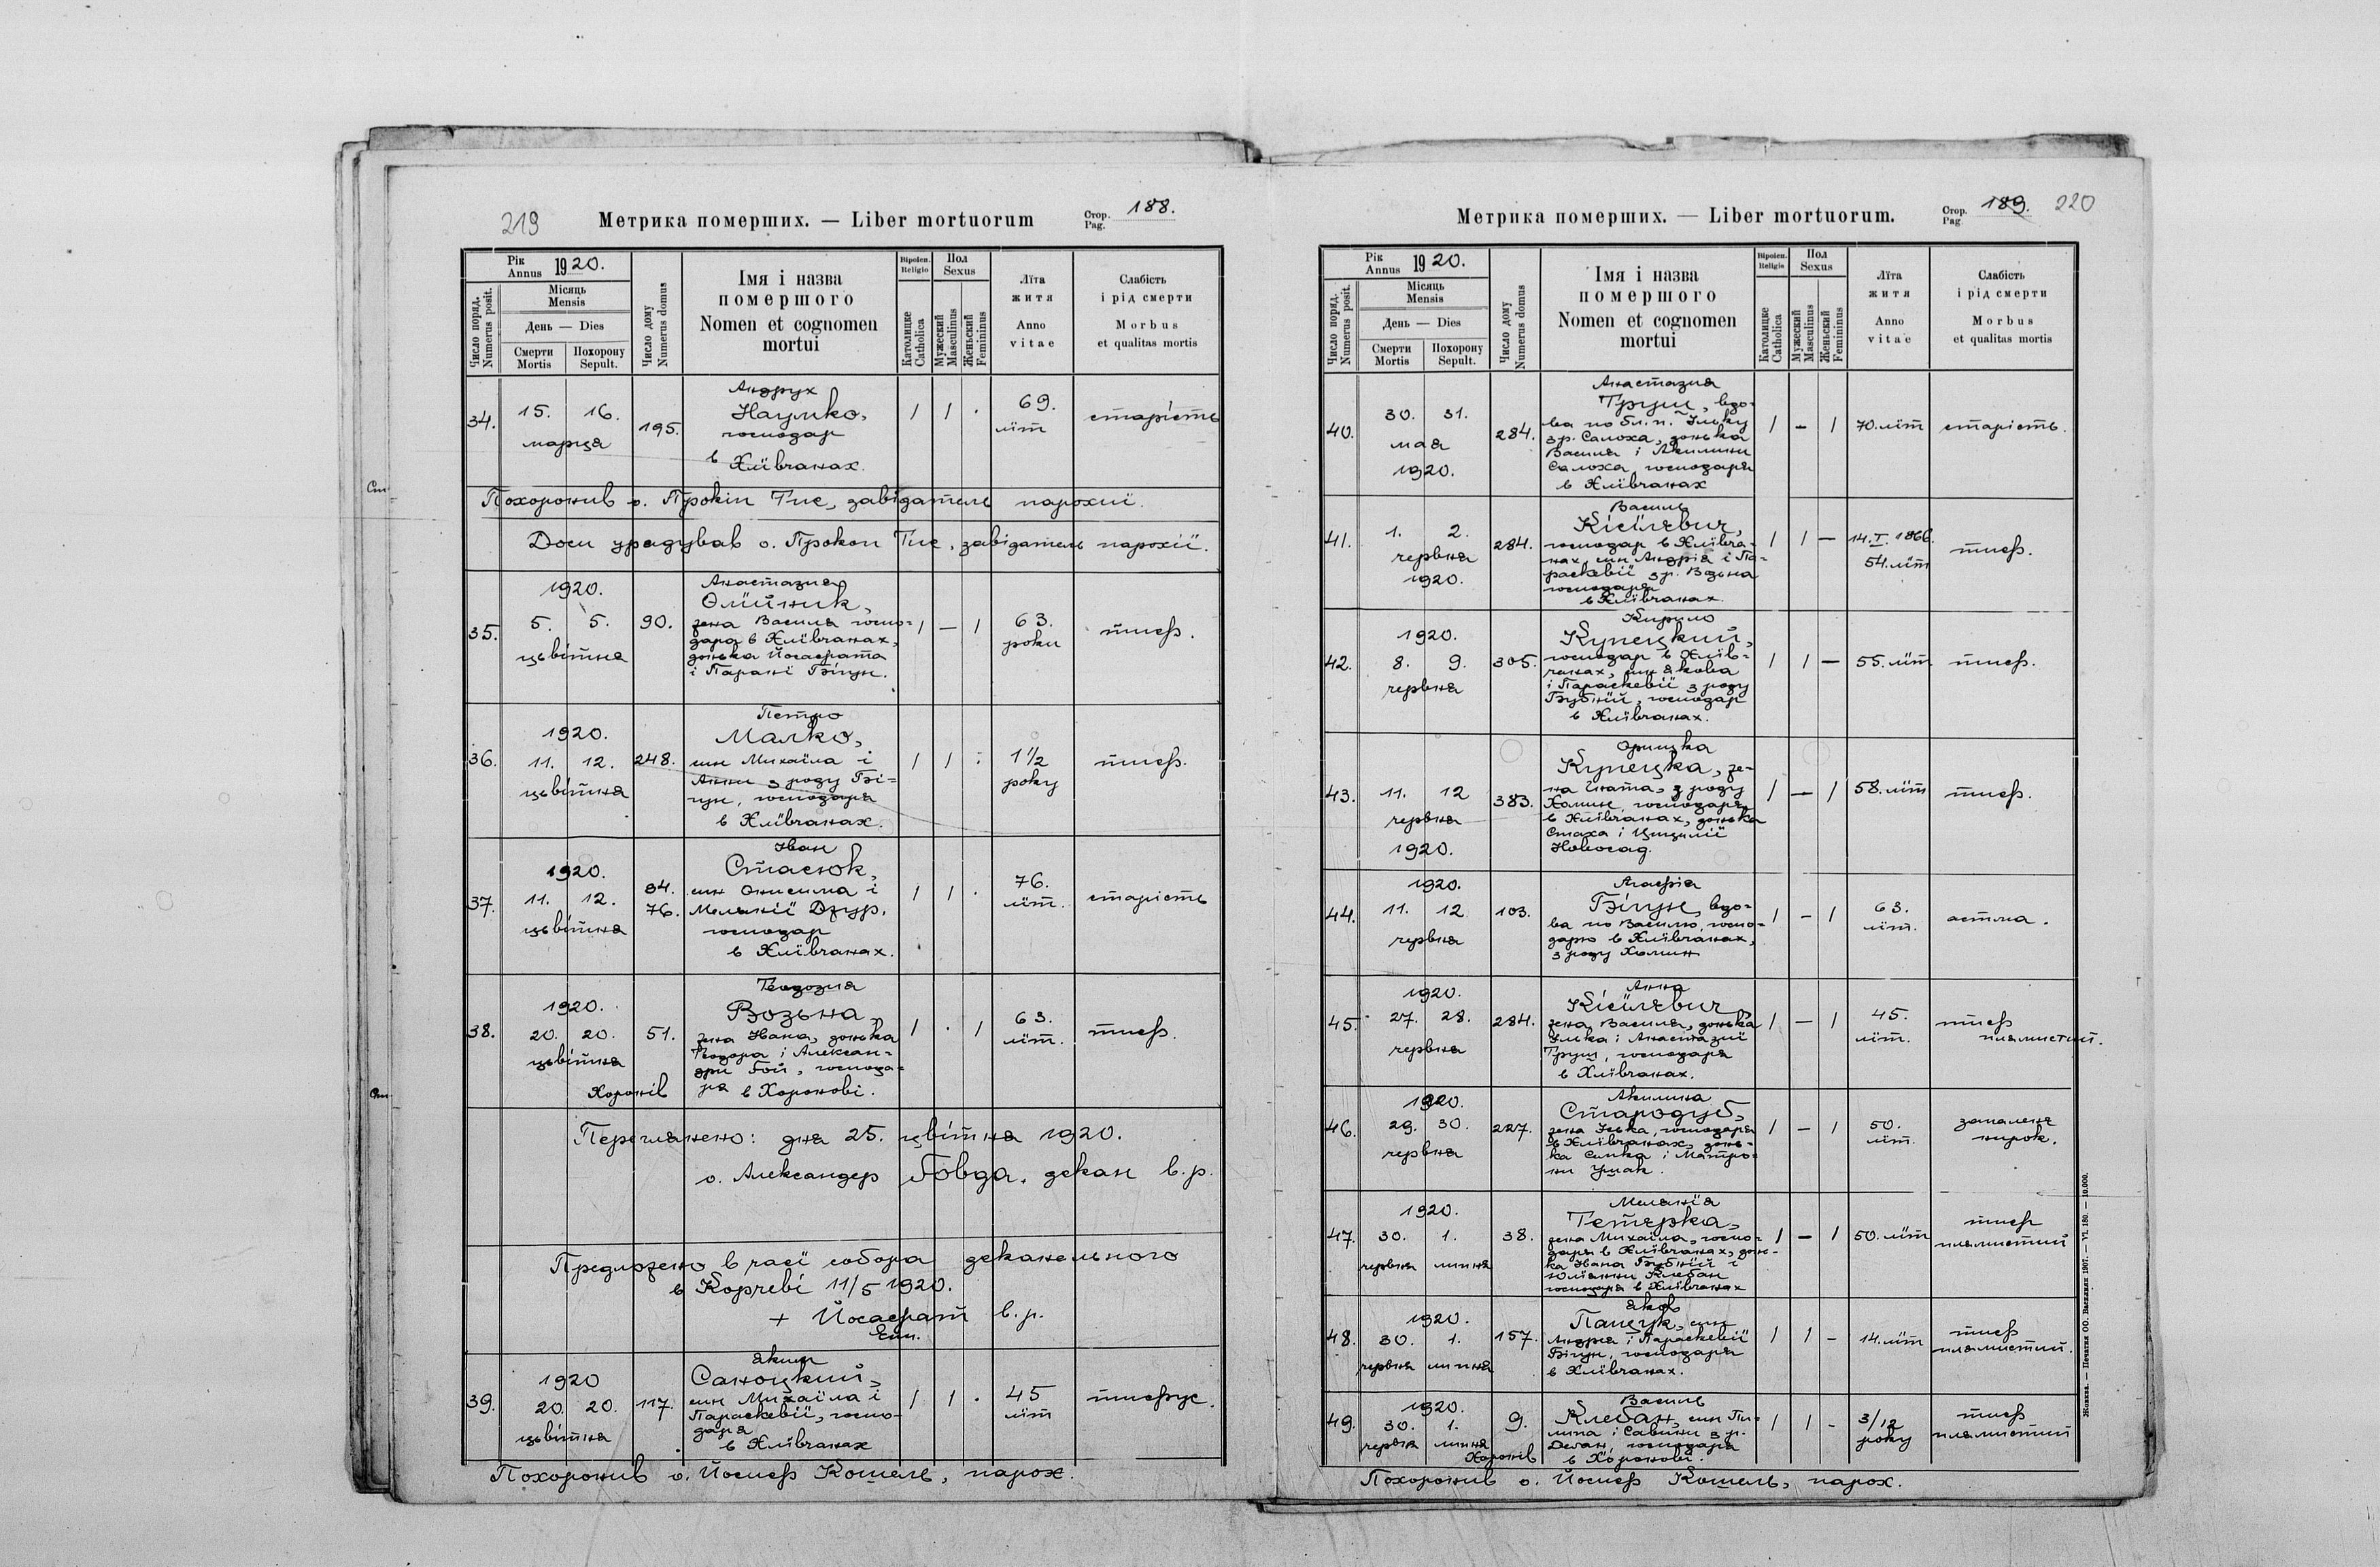 219
Метрика померших. — Liber mortuorum
Стор. Pag. 188.
Рік Annus 1920.
Місяць Mensis
День — Dies
Смерти Mortis
Похорону Sepult.
Число поряд. Numerus posit.
Число дому Numerus domus
Імя і назва
помершого
Nomen et cognomen
mortui
Віроісп. Religio
Католицке Catholica
Пол Sexus
Мужеский Masculinus
Женьский Femininus
Лїта
житя
Anno
vitae
Слабість
і рід смерти
Morbus
et qualitas mortis
34. 15. 16. марця 195.
Андрух
Наумко,
господар
в Хлївчанах.
1 1 · 69. лїт старість
Похоронив о. Прокіп Тис, завідатель парохиї.
Доси урядував о. Прокоп Тис, завідатель парохії.
35. 1920. 5. 5. цьвітня 90.
Анастазия
Олїйник,
жена Василя госпо-
даря в Хлївчанах,
донька Йосафата
і Парані Бігун.
1 — 1 63. роки тиф.
36. 1920. 11. 12. цьвітня 248.
Петро
Малко,
син Михаїла і
Анни з роду Бі-
гун, господаря
в Хлївчанах.
1 1 : 1½ року тиф.
37. 1920. 11. 12. цьвітня 84. 76.
Іван
Стасюк,
син Онисима і
Мелянії Джур,
господар
в Хлївчанах.
1 1 · 76. лїт. старість
38. 1920. 20. 20. цьвітня 51.
Хоронів
Теодозия
Возьна,
жена Івана, донька
Теодора і Алексан-
дри Бой, господа-
ря в Хоронові.
1 · 1 63. лїт. тиф.
Переглянено: дня 25. цвітня 1920.
о. Александер Бовда, декан в. р.
Предложено в часї собора деканального
в Корчеві 11/5 1920.
+ Йосафат в. р.
Еп.
39. 1920 20. 20. цьвітня 117.
Яким
Саноцкий,
син Михаїла і
Параскевії, госпо-
даря
в Хлївчанах
1 1 · 45 лїт тифус.
Похоронив о. Йосиф Кошель, парох.
Метрика померших. — Liber mortuorum.
Стор. Pag. 189. 220
Рік Annus 1920.
Місяць Mensis
День — Dies
Смерти Mortis
Похорону Sepult.
Число поряд. Numerus posit.
Число дому Numerus domus
Імя і назва
помершого
Nomen et cognomen
mortui
Віроісп. Religio
Католицке Catholica
Пол Sexus
Мужеский Masculinus
Женьский Femininus
Лїта
житя
Anno
vitae
Слабість
і рід смерти
Morbus
et qualitas mortis
40. 30. 31. мая 1920. 284.
Анастазия
Трущ, вдо-
ва по бл. п. Ільку
з р. Салоха, донька
Василя і Акилини
Салоха, господаря
в Хлївчанах
1 — 1 70. лїт старість.
41. 1. 2. червня 1920. 284.
Василь
Кісїлевич,
господар в Хлївча-
нах, син Андрія і Па-
раскевії з р. Возьна
господаря
в Хлївчанах.
1 1 — 14. I. 1866. 54. лїт тиф.
42. 1920. 8. 9. червня 305.
Кирило
Купецкий,
господар в Хлїв-
чанах, син Якова
і Параскевії з роду
Бубнїй, господар
в Хлївчанах.
1 1 — 55. лїт. тиф.
43. 11. 12 червня 1920. 383.
Оришка
Купецка, же-
на Ігната, з роду
Хомин, господаря
в Хлївчанах, донька
Стаха і Цицилїї
Новосад.
1 — 1 58. лїт тиф.
44. 1920. 11. 12 червня 103.
Агафія
Бігун, вдо-
ва по Василю, госпо-
дарю в Хлївчанах,
з роду Хомин
1 — 1 63. лїт. астма.
45. 1920. 27. 28. червня 284.
Анна
Кісїлевич,
жена Василя, донька
Ілька і Анастазиї
Трущ, господаря
в Хлївчанах.
1 — 1 45. лїт. тиф
плямистий.
46. 1920. 29. 30. червня 227.
Акилина
Стародуб,
жена Іська, господаря
в Хлївчанах, донь-
ка Сенка і Матро-
ни Ушак.
1 — 1 50. лїт. запаленє
нирок.
47. 1920. 30. 1. червня липня 38.
Меланїя
Тетерка,
жена Михаїла, госпо-
даря в Хлївчанах, донь-
ка Івана Бубнїй і
Юлїянни Клебан
господаря в Хлївчанах
1 — 1 50. лїт тиф
плямистий
48. 1920. 30. 1. червня липня 157.
Яков
Папцук, син
Андрея і Параскевії
Бігун, господаря
в Хлївчанах.
1 1 — 14. лїт тиф
плямистий.
49. 1920. 30. 1. червня липня 9.
Хоронів
Василь
Клебан, син Пи-
липа і Савини з р.
Деган, господаря
в Хоронові.
1 1 — 3/12 року тиф
плямистий
Похоронив о. Йосиф Кошель, парох.
Жовква. — Печатня ОО. Василиян 1907. — VI. 180. — 10.000.